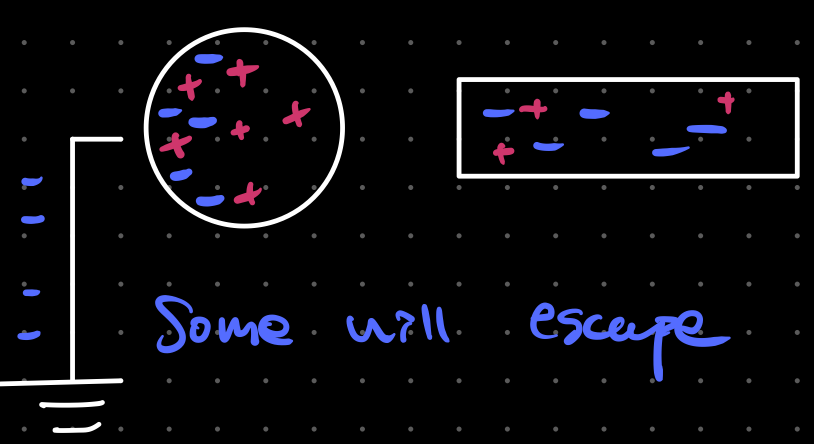 Some will escape